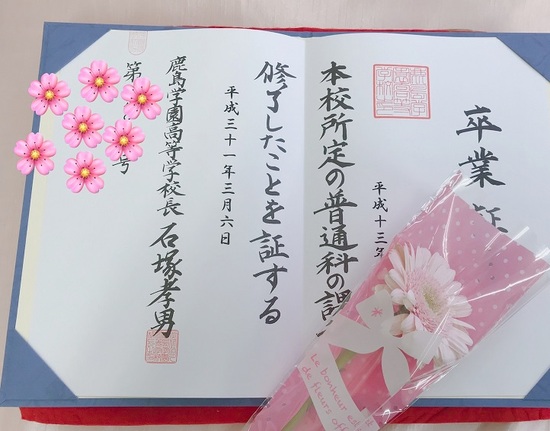 卒業証
平成十三年
本校所定の普通科の課
修了したことを証する
平成三十一年三月六日
鹿島学園高等学校長 石塚孝男
第
号
Le bonheur est
de fleurs off